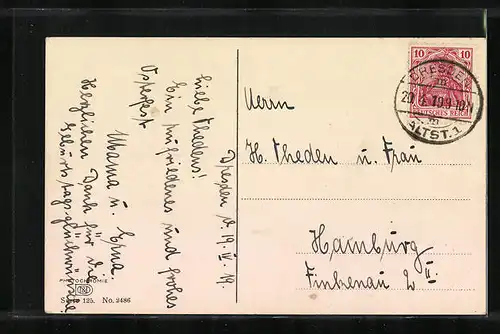 Dresden d. 19. IV 19.
Liebe Thedens!
Ein zufriedenes und frohes
Osterfest
Mama u. Erna.
Herzlichen Dank für die
Geburtstagsglückwünsche
Serie 125. No. 2486
10 10
DEUTSCHES REICH
DRESDEN
ALTST. 1
Herrn
H. Theden u. Frau
Hamburg
Finkenau 2 II